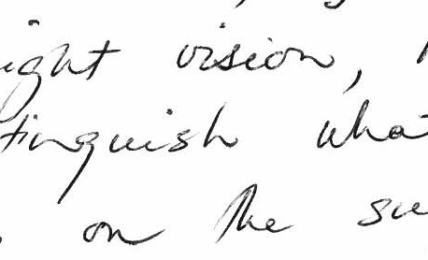 ight vision,
tinguish what
on the su